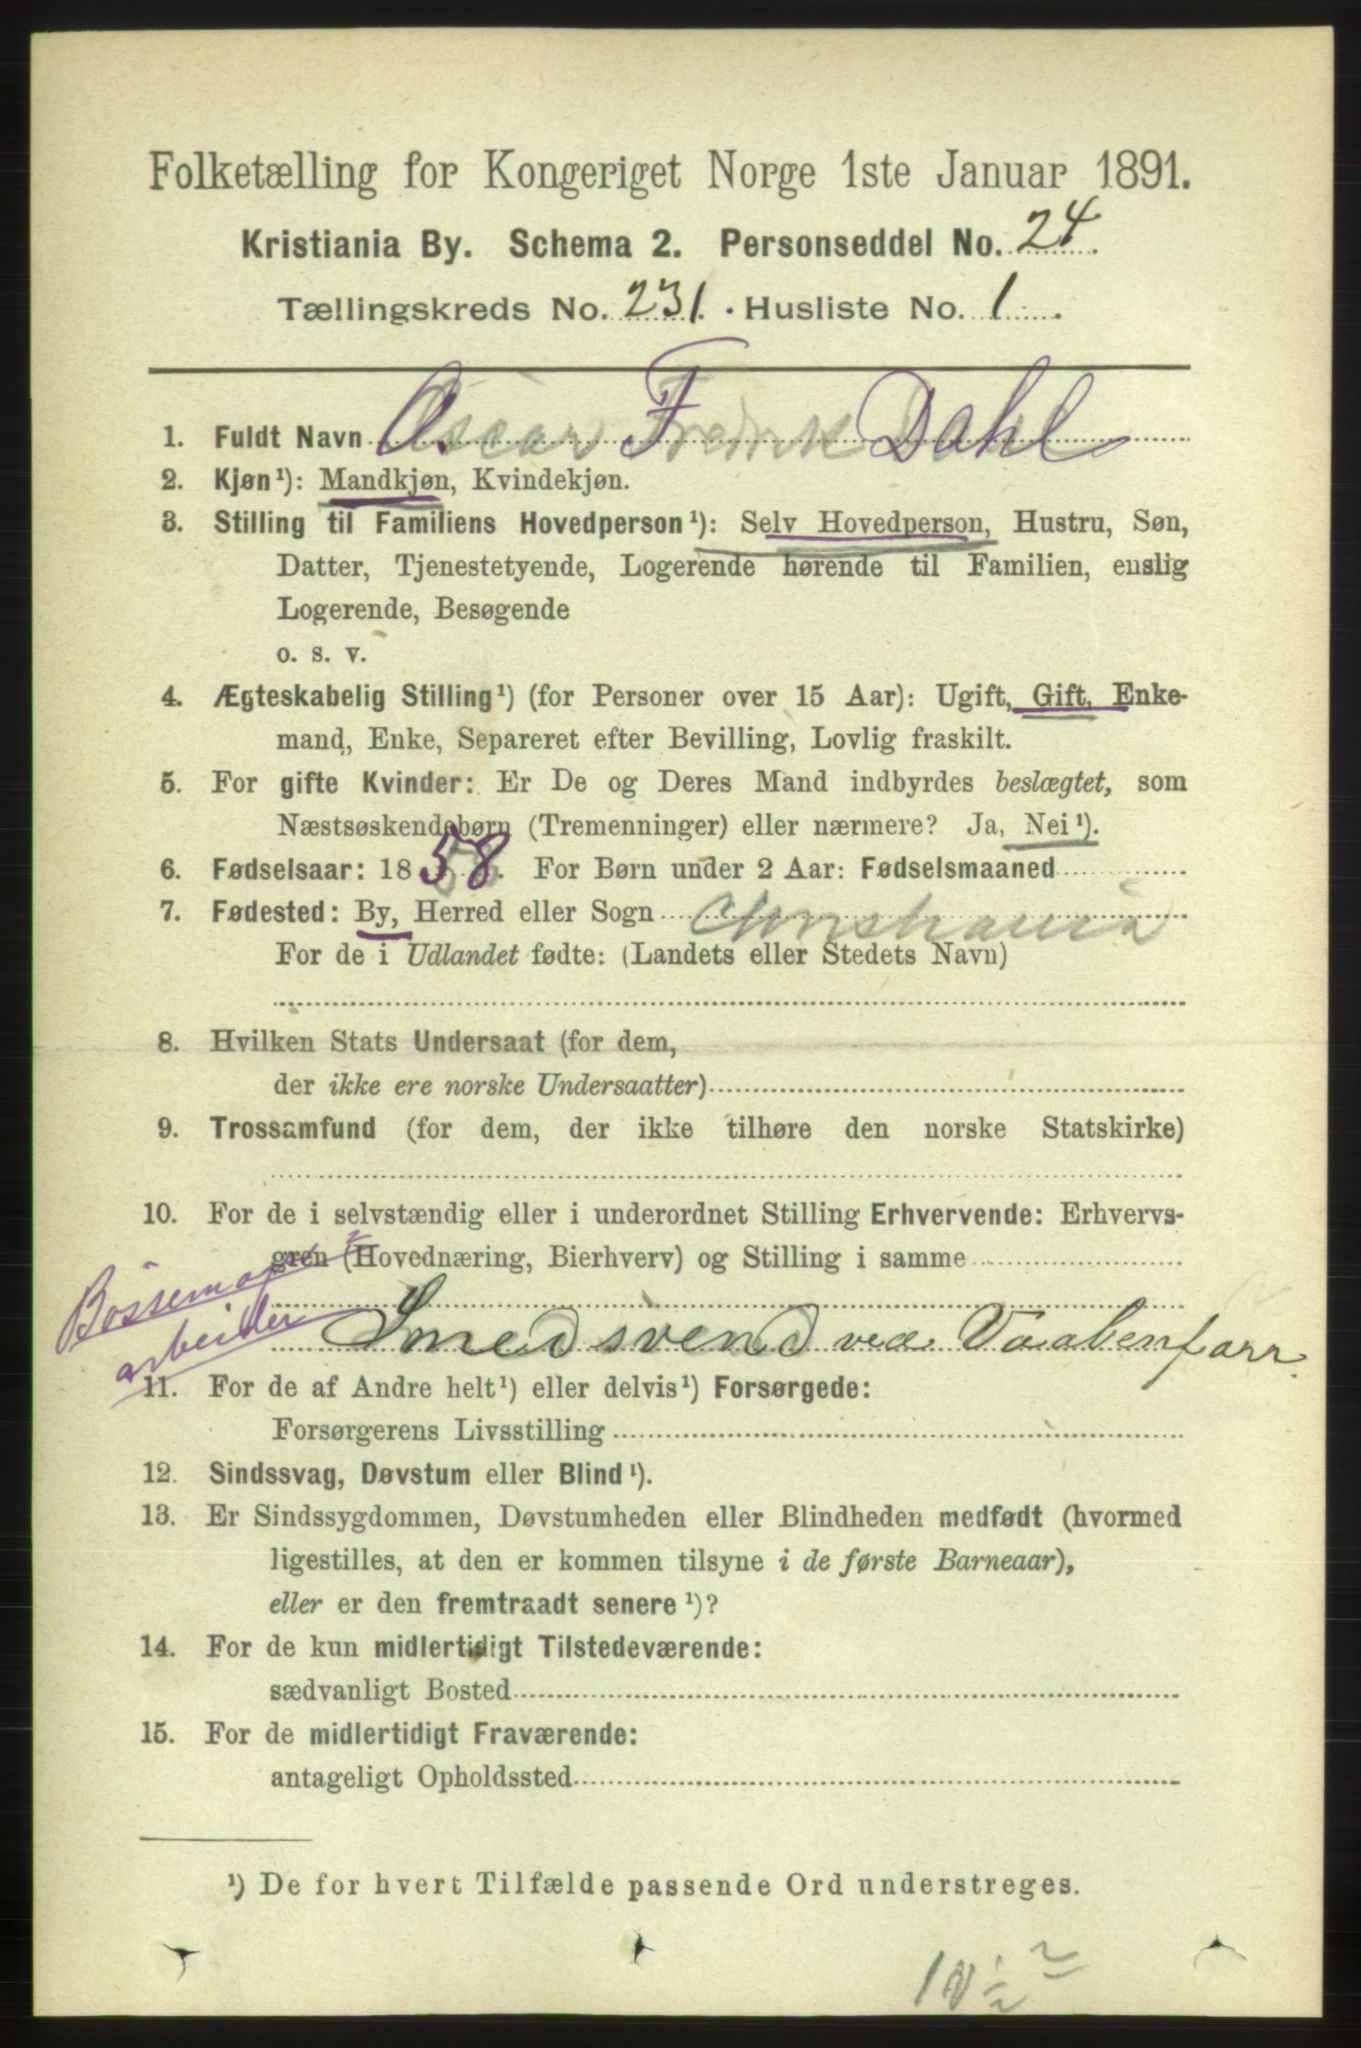 Folketælling for Kongeriget Norge 1ste Januar 1891.
Kristiania By. Schema 2. Personseddel No. 24.
Tællingskreds No. 231. · Husliste No. 1.
1. Fuldt Navn Oscar Fredrik Dahl
2. Kjøn¹): Mandkjøn, Kvindekjøn.
3. Stilling til Familiens Hovedperson¹): Selv Hovedperson, Hustru, Søn,
Datter, Tjenestetyende, Logerende hørende til Familien, enslig
Logerende, Besøgende
o. s. v.
4. Ægteskabelig Stilling¹) (for Personer over 15 Aar): Ugift, Gift, Enke-
mand, Enke, Separeret efter Bevilling, Lovlig fraskilt.
5. For gifte Kvinder: Er De og Deres Mand indbyrdes beslægtet, som
Næstsøskendebørn (Tremenninger) eller nærmere? Ja, Nei¹).
6. Fødselsaar: 1858. For Børn under 2 Aar: Fødselsmaaned
7. Fødested: By, Herred eller Sogn Christiania
For de i Udlandet fødte: (Landets eller Stedets Navn)
8. Hvilken Stats Undersaat (for dem,
der ikke ere norske Undersaatter)
9. Trossamfund (for dem, der ikke tilhøre den norske Statskirke)
10. For de i selvstændig eller i underordnet Stilling Erhvervende: Erhvervs-
gren (Hovednæring, Bierhverv) og Stilling i samme
Bössemager
arbeider Smedsvend ved Vaabenfarr.
11. For de af Andre helt¹) eller delvis¹) Forsørgede:
Forsørgerens Livsstilling
12. Sindssvag, Døvstum eller Blind¹).
13. Er Sindssygdommen, Døvstumheden eller Blindheden medfødt (hvormed
ligestilles, at den er kommen tilsyne i de første Barneaar),
eller er den fremtraadt senere¹)?
14. For de kun midlertidigt Tilstedeværende:
sædvanligt Bosted
15. For de midlertidigt Fraværende:
antageligt Opholdssted
¹) De for hvert Tilfælde passende Ord understreges.